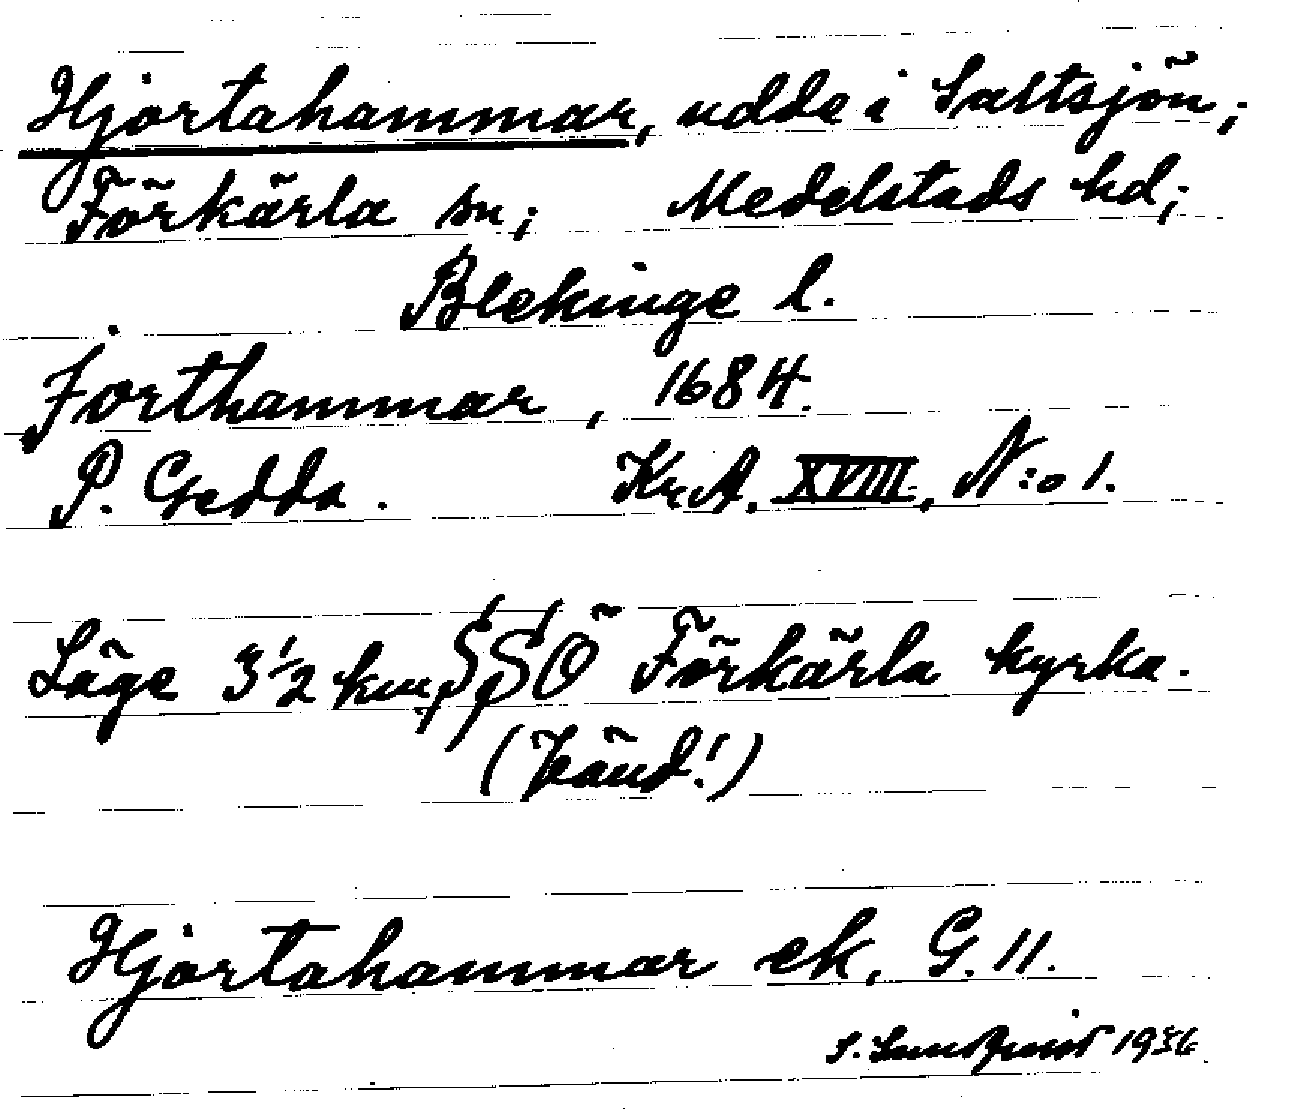 Hjortahammar, udde i Saltsjön;
Förkärla sn; Medelstads hd;
Blekinge l.
Jorthammar, 1684.
P. Gedda. Kr.A. XVIII, N:o 1.
Läge 3½ km SSÖ Förkärla kyrka.
(Vänd!)
Hjortahammar ek, G. 11.
S. Sundqvist 1936